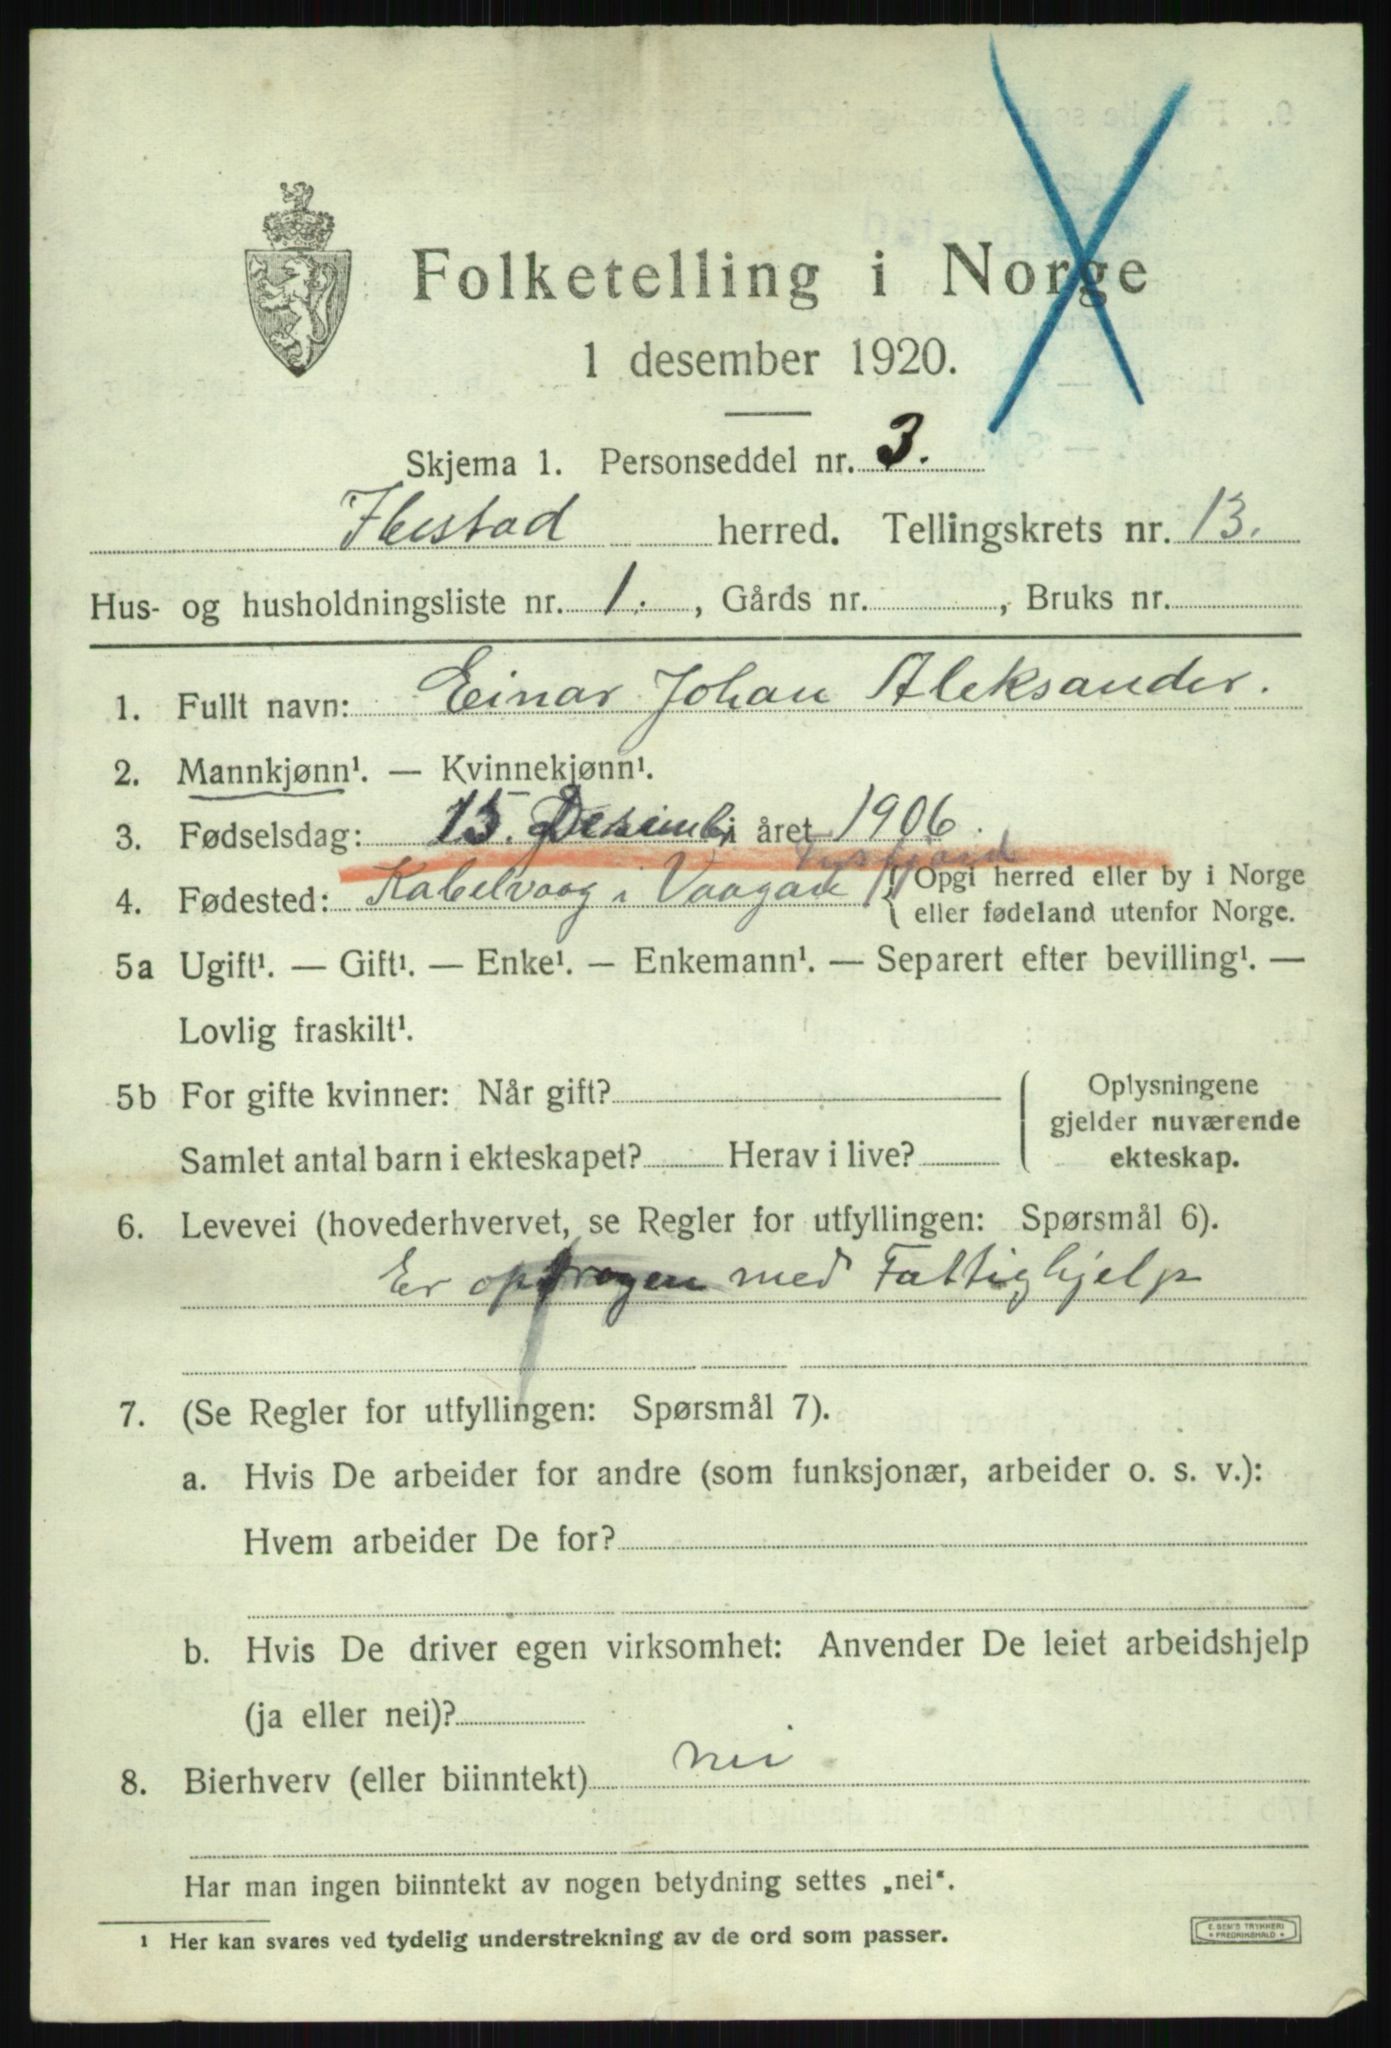 Folketelling i Norge
1 desember 1920.
Skjema 1. Personseddel nr. 3.
Ibestad herred. Tellingskrets nr. 13.
Hus- og husholdningsliste nr. 1. , Gårds nr. , Bruks nr.
1. Fullt navn: Einar Johan Aleksander.
2. Mannkjønn¹. — Kvinnekjønn¹.
3. Fødselsdag: 15. Desemb i året 1906.
Tysfjord
4. Fødested: Kabelvaag i Vaagan { Opgi herred eller by i Norge
eller fødeland utenfor Norge.
5a Ugift¹. — Gift¹. — Enke¹. — Enkemann¹. — Separert efter bevilling¹. —
Lovlig fraskilt¹.
5b For gifte kvinner: Når gift? { Oplysningene
gjelder nuværende
Samlet antal barn i ekteskapet? Herav i live? ekteskap.
6. Levevei (hovederhvervet, se Regler for utfyllingen: Spørsmål 6).
Er med Fattighjelp
7. (Se Regler for utfyllingen: Spørsmål 7).
a. Hvis De arbeider for andre (som funksjonær, arbeider o. s. v.):
Hvem arbeider De for?
b. Hvis De driver egen virksomhet: Anvender De leiet arbeidshjelp
(ja eller nei)?
8. Bierhverv (eller biinntekt) nei
Har man ingen biinntekt av nogen betydning settes „nei“.
¹ Her kan svares ved tydelig understrekning av de ord som passer.
E. SEM'S TRYKKERI
FREDRIKSHALD